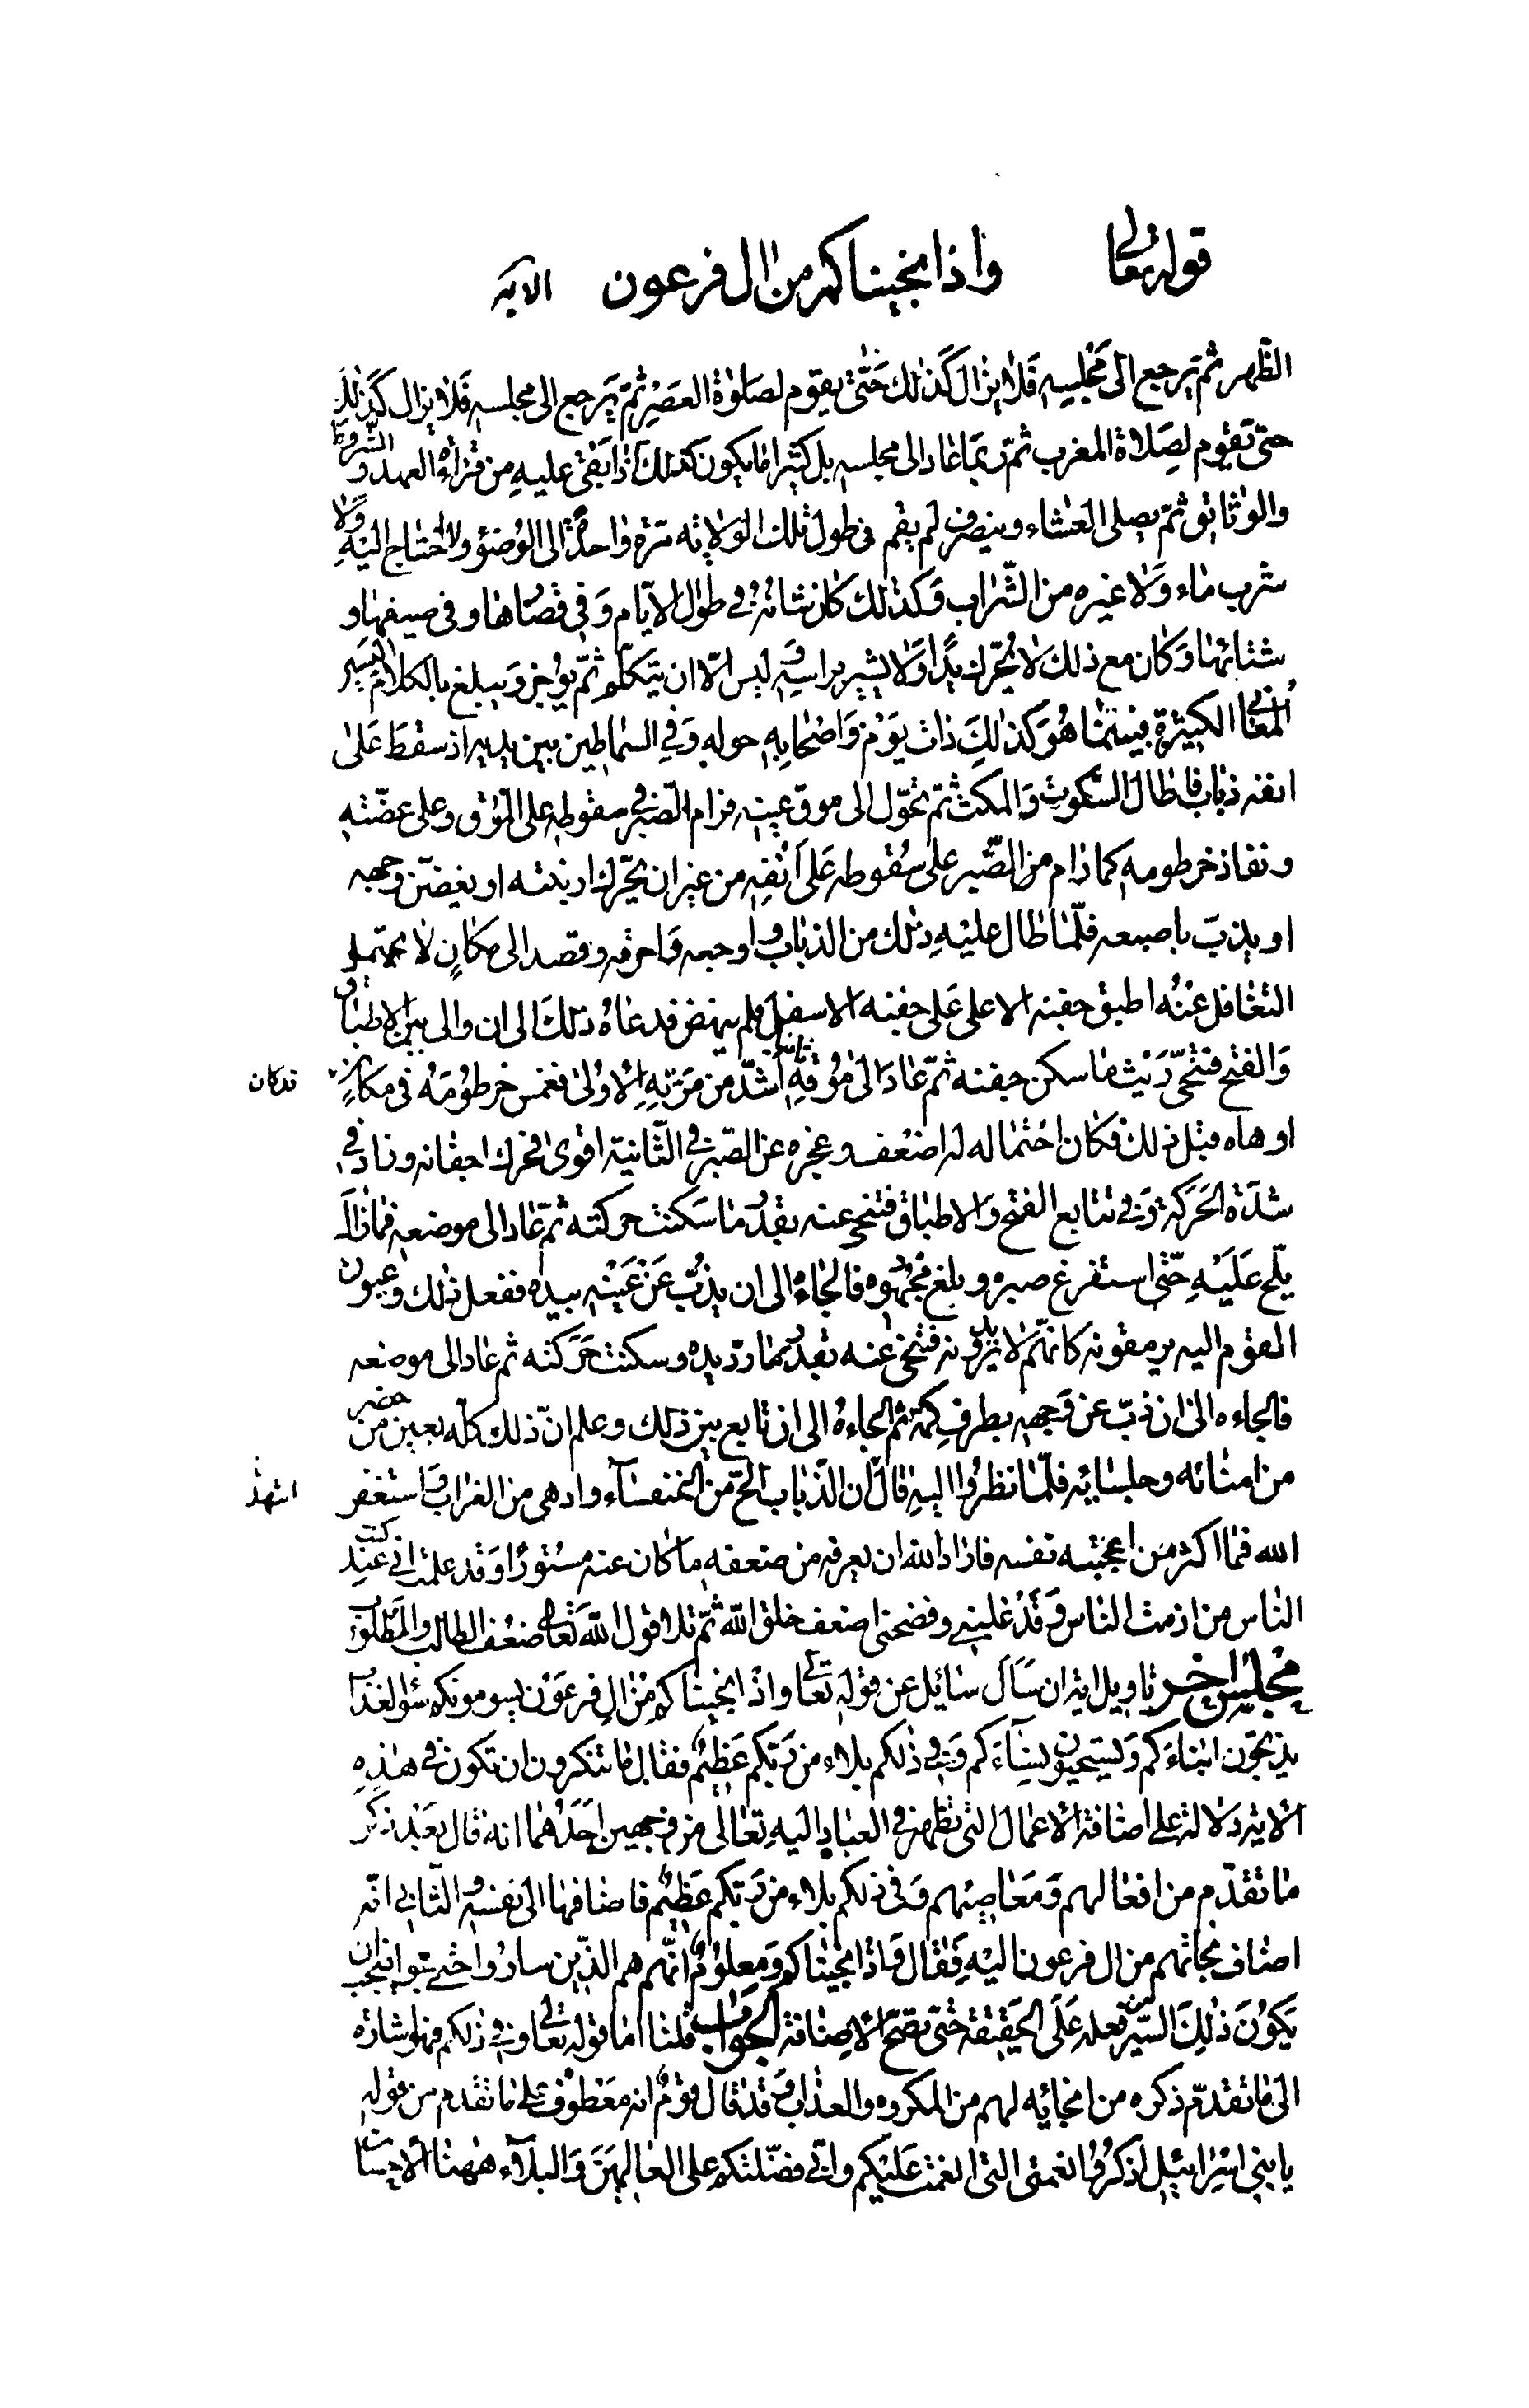 قوله تعالى واذ انجيناكم من ال فرعون الاية
الظهر ثم يرجع الى مجلسه فلا يزال كذلك حتى يقوم لصلوة العصر ثم يرجع الى مجلسه فلا يزال كذلك
حتى يقوم لصلاة المغرب ثم ربما عاد الى مجلسه بل كثيرا ما يكون كذلك اذا بقى عليه من قراءة العهد و الشروط
والوثائق ثم يصلى العشاء وينصرف لم يقم فى طول تلك الولاية مرة واحدة الى الوضوء ولا احتاج اليه ولا
شرب ماء ولا غيره من الشراب وكذلك كان شانه فى طوال الايام وفى قصارها وفى صيفها و
شتائها وكان مع ذلك لا يحرك يدا ولا يشير براسه وليس الا ان يتكلم ثم يوجز ويبلغ بالكلام اليسير
المعانى الكثيرة فبينما هو كذلك ذات يوم واصحابه حوله وفى السماطين بين يديه اذ سقط على
انفه ذباب فاطال السكوت والمكث ثم تحول الى موق عينه فرام الصبر فى سقوطه على الموق وعلى عضته
ونفاذ خرطومه كما رام من الصبر على سقوطه على انفه من غير ان يحرك ارنبته او يغضن وجهه
او يذب باصبعه فلما طال عليه ذلك من الذباب و اوجعه واحرقه وقصد الى مكان لا يحتمل
التغافل عنه اطبق جفنه الاعلى على جفنه الاسفل فلم ينهض فدعاه ذلك الى ان والى بين الاطباق
والفتح فتنحى ريث ما سكن جفنه ثم عاد الى موقه ثانيا اشد من مرته الاولى فغمس خرطومه فى مكان
قد كان
اوهاه قبل ذلك فكان احتماله له اضعف وعجزه عن الصبر فى الثانية اقوى فحرك اجفانه وزاد فى
شدة الحركة وفى تتابع الفتح والاطباق فتنحى عنه بقدر ما سكنت حركته ثم عاد الى موضعه فما زال
يلح عليه حتى استفرغ صبره وبلغ مجهوده فالجاه الى ان يذب عن عينيه بيده ففعل ذلك وعيون
القوم اليه يرمقونه كانهم لا يرونه فتنحى عنه بقدر ما رد يده وسكنت حركته ثم عاد الى موضعه
فالجاءه الى ان ذب عن وجهه بطرف كمه ثم الجاءه الى ان تابع بين ذلك وعلم ان ذلك كله بعين من حضر
من امنائه وجلسائه فلما نظروا اليه قال ان الذباب الح من الخنفساء وادهى من الغراب واستغفر
اشهد
الله فما اكثر من اعجبته نفسه فاراد الله ان يعرفه من ضعفه ما كان عنه مستورا وقد علمت انى كنت عند
الناس من ازمت الناس وقد غلبنى وفضحنى اضعف خلق الله ثم تلا قول الله تعالى ضعف الطالب والمطلوب
مجلس اخر تاويل اية ان سال سائل عن قوله تعالى واذ انجيناكم من ال فرعون يسومونكم سوء العذاب
يذبحون ابناءكم ويستحيون نساءكم وفى ذلكم بلاء من ربكم عظيم فقال ما تنكرون ان تكون فى هذه
الاية دلالة على اضافة الاعمال التى تظهر فى العباد اليه تعالى من وجهين احدهما انه قال بعد ذكر
ما تقدم من افعالهم ومعاصيهم وفى ذلكم بلاء من ربكم عظيم فاضافها الى نفسه والثانى انه
اضاف نجاتهم من ال فرعون اليه فقال واذ انجيناكم ومعلوم انهم هم الذين ساروا حتى نجوا فيجب ان
يكون ذلك السير من فعله على الحقيقة حتى تصح الاضافة الجواب قلنا اما قوله تعالى وفى ذلكم فهو اشارة
الى ما تقدم ذكره من انجائه لهم من المكروه والعذاب وقد قال قوم انه معطوف على ما تقدم من قوله
يا بنى اسرائيل اذكروا نعمتى التى انعمت عليكم وانى فضلتكم على العالمين والبلاء ههنا الاحسان